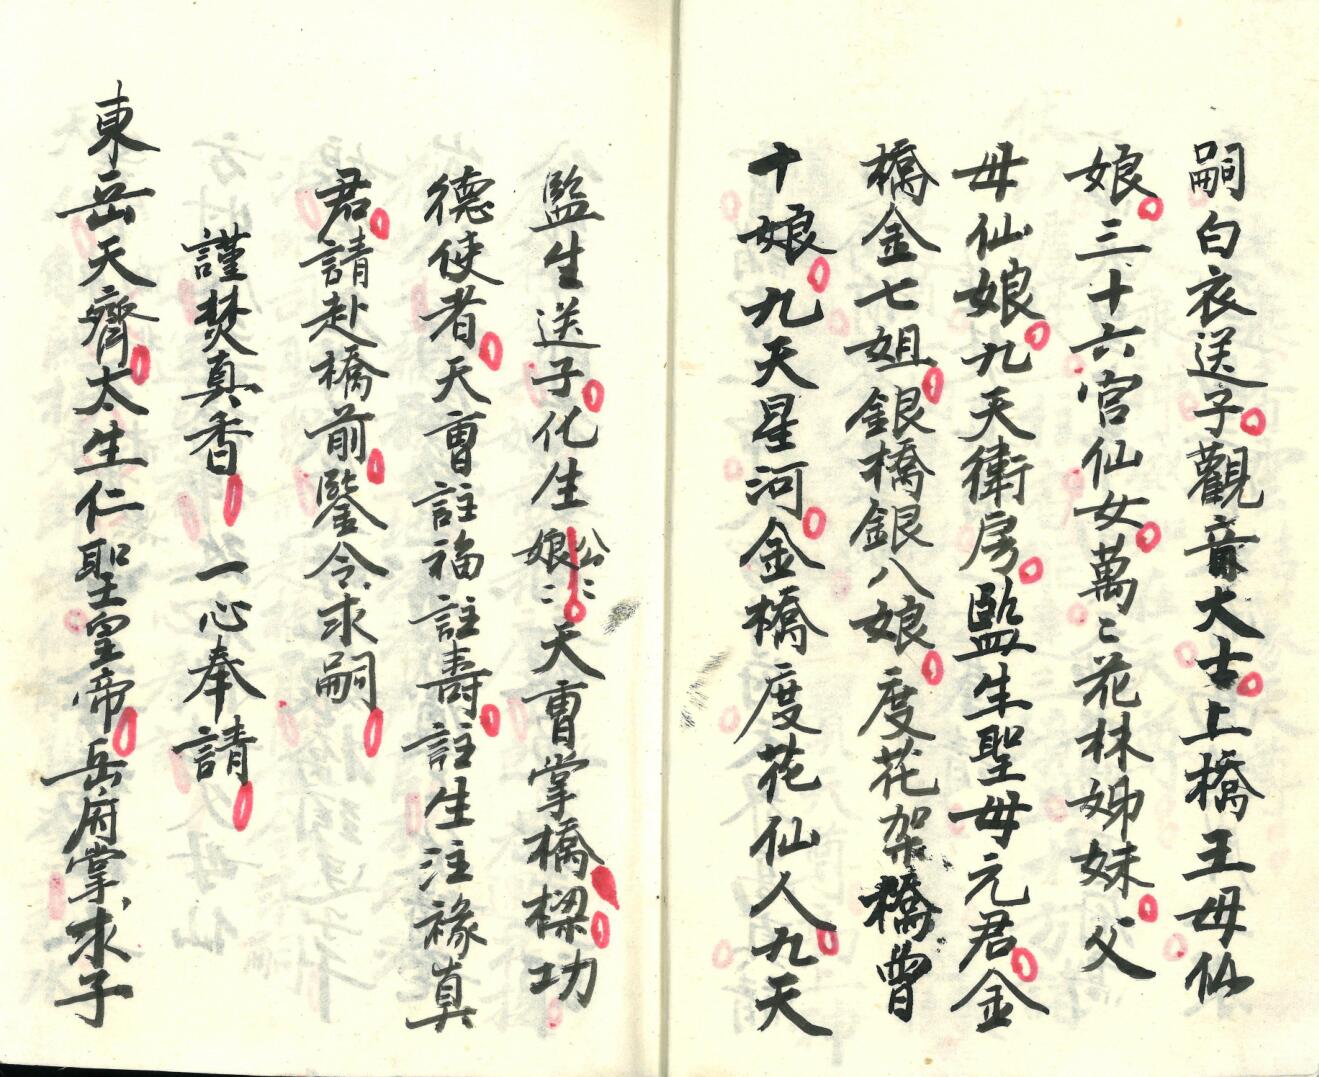 嗣白衣送子觀音大士上橋王母仙
娘三十六宮仙女萬〻花林姊妹父
母仙娘九天衛房監生聖母元君金
橋金七姐銀橋銀八娘度花架橋曾
十娘九天星河金橋度花仙人九天
監生送子化生娘〻公〻天曹掌橋樑功
德使者天曹註福註壽註生注祿真
君請赴橋前鑒令求嗣
謹焚真香一心奉請
東岳天齊太生仁聖皇帝岳府掌求子